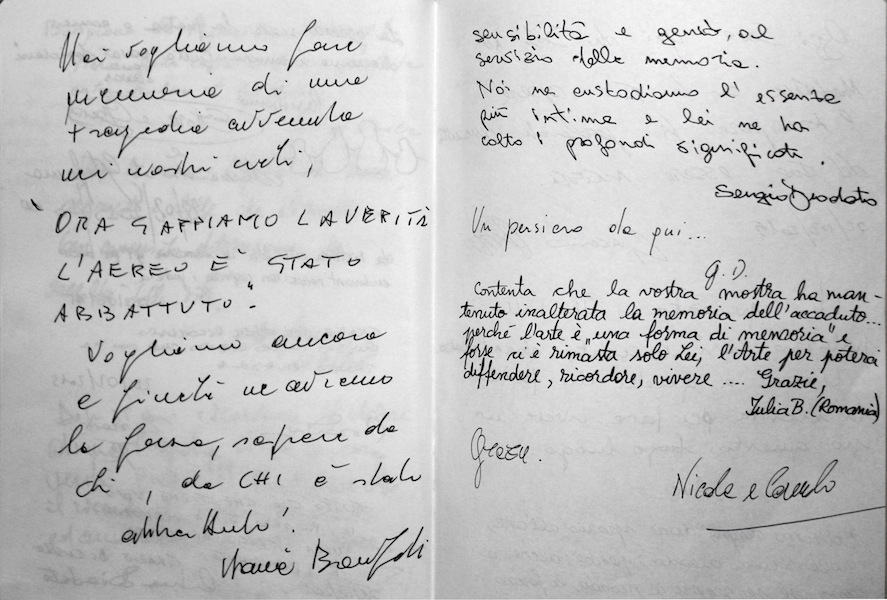 Noi vogliamo fare
memoria di una
tragedia avvenuta
nei nostri cieli,
"ORA SAPPIAMO LA VERITÀ
L'AEREO È STATO
ABBATTUTO".
Vogliamo ancora
e finché ne avremo
la forza, sapere da
chi, da CHI è stato
abbattuto!
sensibilità e genio, al
servizio della memoria.
Noi ne custodiamo l'essenza
più intima e lei ne ha
colto i profondi significati.
Sergio Diodato
Un pensiero da qui...
G. D.
Contenta che la vostra mostra ha man-
tenuto inalterata la memoria dell'accaduto...
perché l'arte è "una forma di memoria" e
forse ci è rimasta solo Lei, l'Arte per poterci
diffendere, ricordare, vivere .... Grazie,
Iulia B. (Romania)
Grazie.
Nicola e